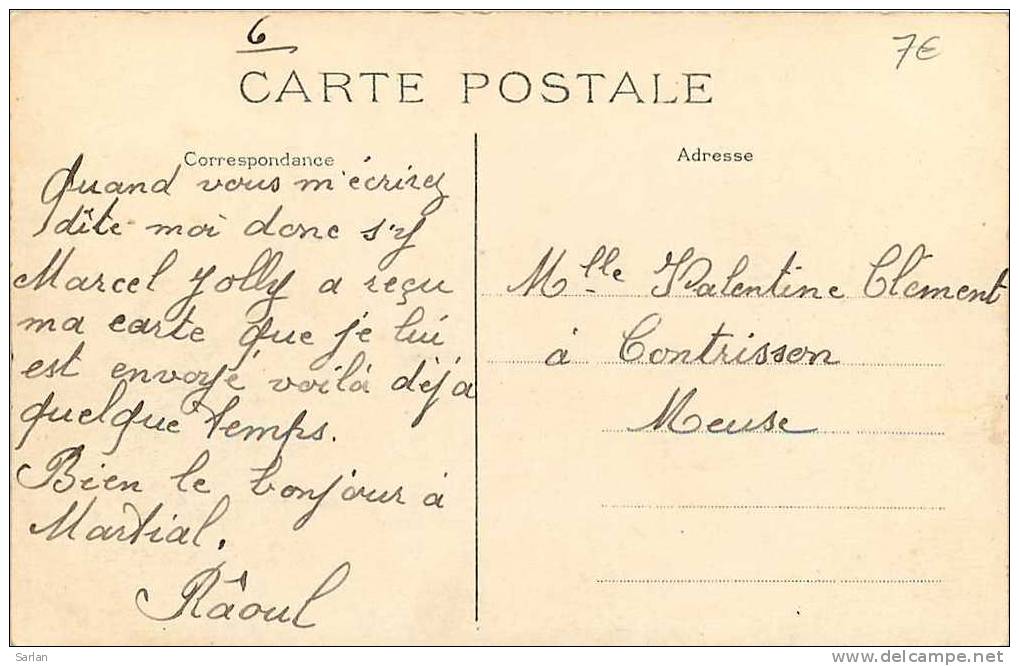 6
7€
CARTE POSTALE
Correspondance
Quand vous m'écrirez
dite moi donc s'y
Marcel Jolly a reçu
ma carte que je lui
est envoyé voilà déja
quelque temps.
Bien le bonjour à
Martial.
Râoul
Adresse
Mlle Valentine Clément
à Contrisson
Meuse
Sarlan
www.delcampe.net